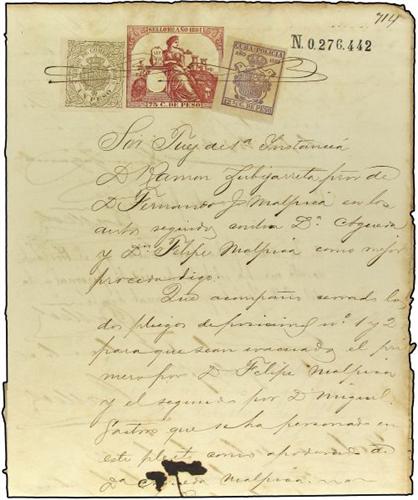 714
N.0.276.442
SELLO 8º AÑO 1881
75 C. DE PESO
CUBA-POLICIA
PESO
Sor Juez de 1ª Instancia
D. Ramon Zubizarreta por de
D. Fernando J. Malpica en los
autos seguidos contra Dª Agueda
y Dn Felipe Malpica como mejor
proceda digo:
Que acompaño cerrado los
dos pliegos de posiciones nº 1 y 2
para que sean evacuados el pri
mero por D. Felipe Malpica
y el segundo por D. Miguel
Castro que se ha personado en
este pleito como apoderado de
Dª Agueda Malpica